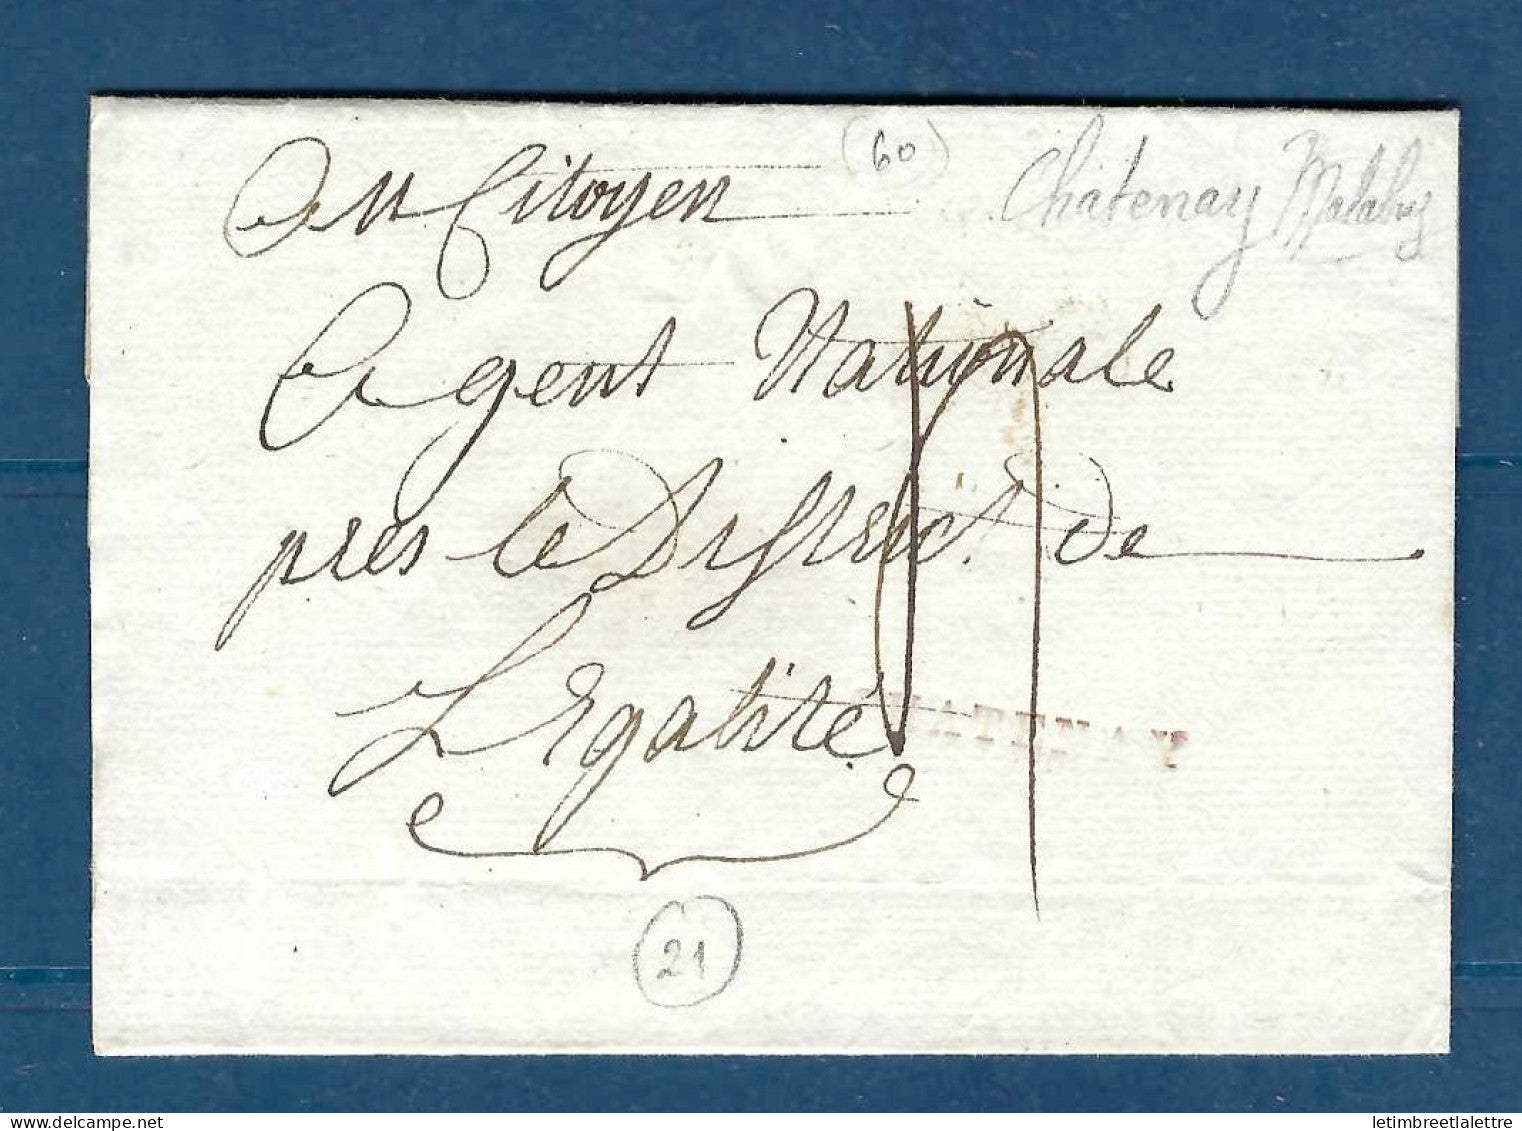 (60)
Chatenay Malabry
Au Citoyen
Agent Nationale
près le District de
L'Egalité
21
www.delcampe.net
letimbreetlalettre